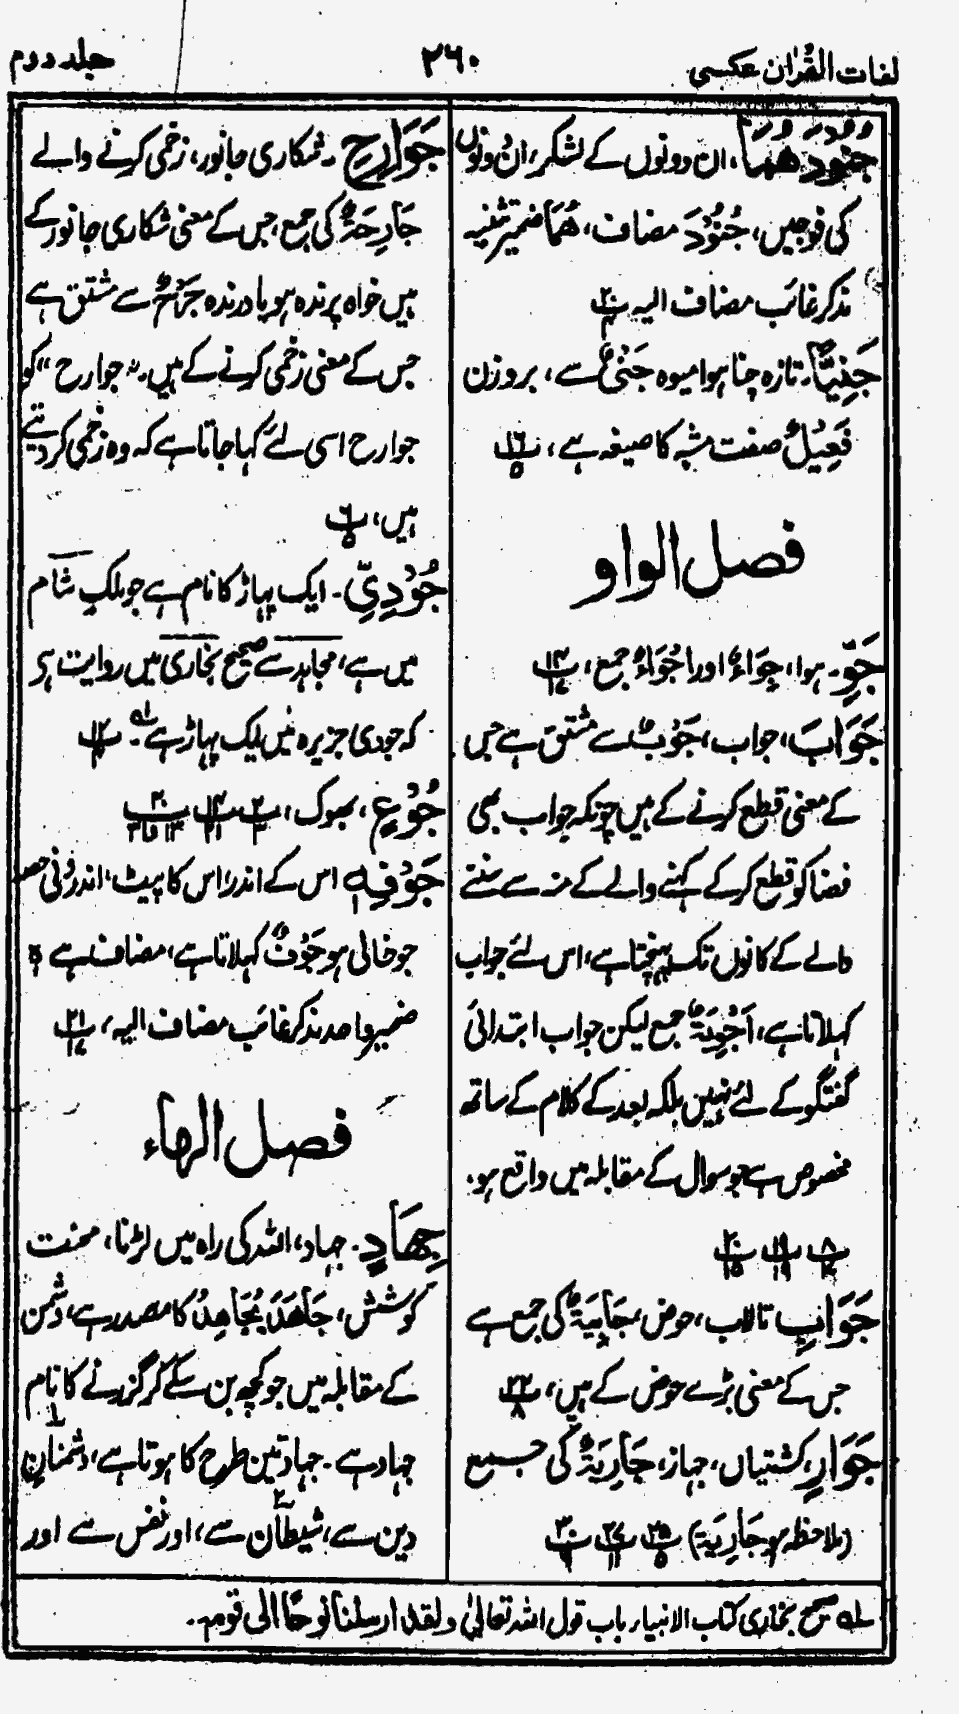 لغات القرآن عکسی
۲۶۰
جلد دوم
جُنُوْدَهُمَا، ان دونوں کے لشکر، ان دونوں
کی فوجیں، جُنُوْدَ مضاف، هُمَا ضمیر تثنیہ
مذکر غائب مضاف الیہ
جَنِیًّا۔ تازہ چنا ہوا میوہ جَنْیٌ سے، بروزن
فَعِیْلٌ صفت مشبہ کا صیغہ ہے، پ ۱۶ ۵
فصل الواو
جَوِّ۔ ہوا، جِوَاءٌ اور اَجْوَاءٌ جمع، پ ۱۴ ۱۷
جَوَابَ، جواب، جَوْبٌ سے مشتق ہے جس
کے معنی قطع کرنے کے ہیں چونکہ جواب بھی
فضا کو قطع کرکے کہنے والے کے منہ سے سننے
والے کے کانوں تک پہنچتا ہے، اس لئے جواب
کہلاتا ہے، اَجْوِبَةٌ جمع لیکن جواب ابتدائی
گفتگو کے لئے نہیں بلکہ بعد کے کلام کے ساتھ
مخصوص ہے جو سوال کے مقابلہ میں واقع ہو۔
پ ۸ ۱۷ پ ۱۹ ۱۹ پ ۲۰ ۱۵
جَوَابِ تالاب، حوض، جَابِیَةٌ کی جمع ہے
جس کے معنی بڑے حوض کے ہیں، پ ۲۲ ۸
جَوَارِ، کشتیاں، جہاز، جَارِیَةٌ کی جمع
(ملاحظہ ہو جَارِیَة) پ ۲۵ ۵ پ ۲۷ ۱۱ پ ۳۰ ۶
جَوَارِحِ۔ شکاری جانور، زخمی کرنے والے
جَارِحَةٌ کی جمع، جس کے معنی شکاری جانور کے
ہیں خواہ پرندہ ہو یا درندہ جَرْحٌ سے مشتق ہے
جس کے معنی زخمی کرنے کے ہیں۔ "جوارح" کو
جوارح اسی لئے کہا جاتا ہے کہ وہ زخمی کر دیتے
ہیں، پ ۶ ۵
جُوْدِیِّ۔ ایک پہاڑ کا نام ہے جو ملک شام
میں ہے، مجاہد سے صحیح بخاری میں روایت ہے
کہ جودی جزیرہ میں ایک پہاڑ ہے۔ لہ پ ۱۲ ۴
جُوْعٍ، بھوک، پ ۲ ۳ پ ۱۴ ۲۱ پ ۳۰ ۱۳ و ۳۱
جَوْفِهٖ اس کے اندر، اس کا پیٹ، اندرونی حصہ
جو خالی ہو جَوْفٌ کہلاتا ہے، مضاف ہے ہ
ضمیر واحد مذکر غائب مضاف الیہ، پ ۲۱ ۱۷
فصل الهاء
جِهَادٍ۔ جہاد، اللہ کی راہ میں لڑنا، محنت
کوشش، جَاهَدَ یُجَاهِدُ کا مصدر ہے، دشمن
کے مقابلہ میں جو کچھ بن سکے کر گزرنے کا نام
جہاد ہے۔ جہاد تین طرح کا ہوتا ہے، دشمنانِ
دین سے، شیطان سے، اور نفس سے اور
لہ صحیح بخاری کتاب الانبیاء باب قول اللہ تعالیٰ ولقد ارسلنا نوحا الی قومہ۔